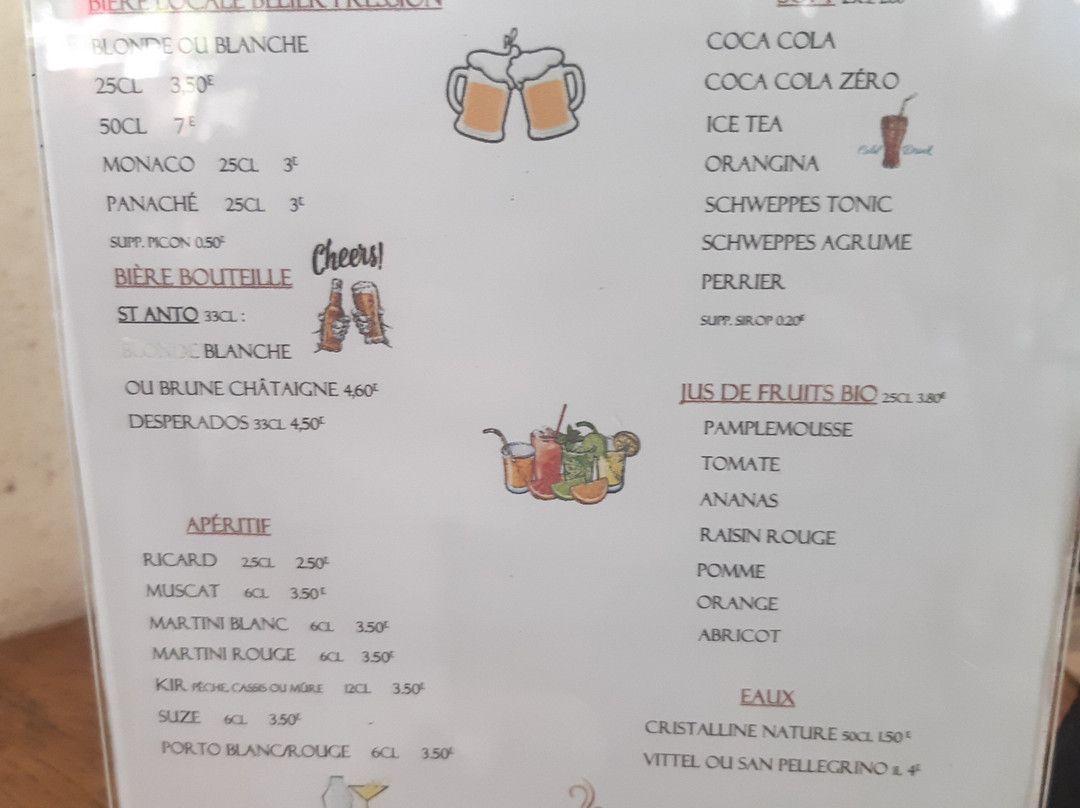 BIÈRE LOCALE BÉLIER PRESSION
BLONDE OU BLANCHE
25CL 3,50€
50CL 7€
MONACO 25CL 3€
PANACHÉ 25CL 3€
SUPP. PICON 0.50€
BIÈRE BOUTEILLE
Cheers!
ST ANTO 33CL :
BLONDE BLANCHE
OU BRUNE CHÂTAIGNE 4,60€
DESPERADOS 33CL 4,50€
APÉRITIF
RICARD 2.5CL 2.50€
MUSCAT 6CL 3.50€
MARTINI BLANC 6CL 3.50€
MARTINI ROUGE 6CL 3.50€
KIR PÊCHE, CASSIS OU MÛRE 12CL 3.50€
SUZE 6CL 3.50€
PORTO BLANC/ROUGE 6CL 3.50€
COCA COLA
COCA COLA ZÉRO
ICE TEA
Cold Drink
ORANGINA
SCHWEPPES TONIC
SCHWEPPES AGRUME
PERRIER
SUPP. SIROP 0.20€
JUS DE FRUITS BIO 25CL 3.80€
PAMPLEMOUSSE
TOMATE
ANANAS
RAISIN ROUGE
POMME
ORANGE
ABRICOT
EAUX
CRISTALLINE NATURE 50CL 1.50€
VITTEL OU SAN PELLEGRINO 1L 4€